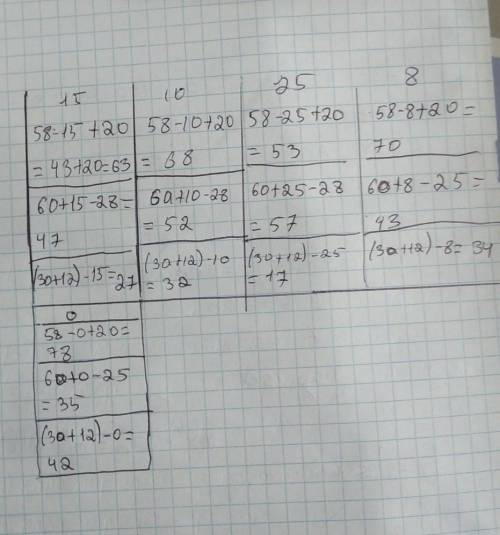 15
58-15+20
=43+20=63
60+15-28=
47
(30+12)-15=27
10
58-10+20
=68
60+10-28
=52
(30+12)-10
=32
25
58-25+20
=53
60+25-28
=57
(30+12)-25
=17
8
58-8+20=
70
60+8-25=
43
(30+12)-8=34
0
58-0+20=
78
60+0-25
=35
(30+12)-0=
42